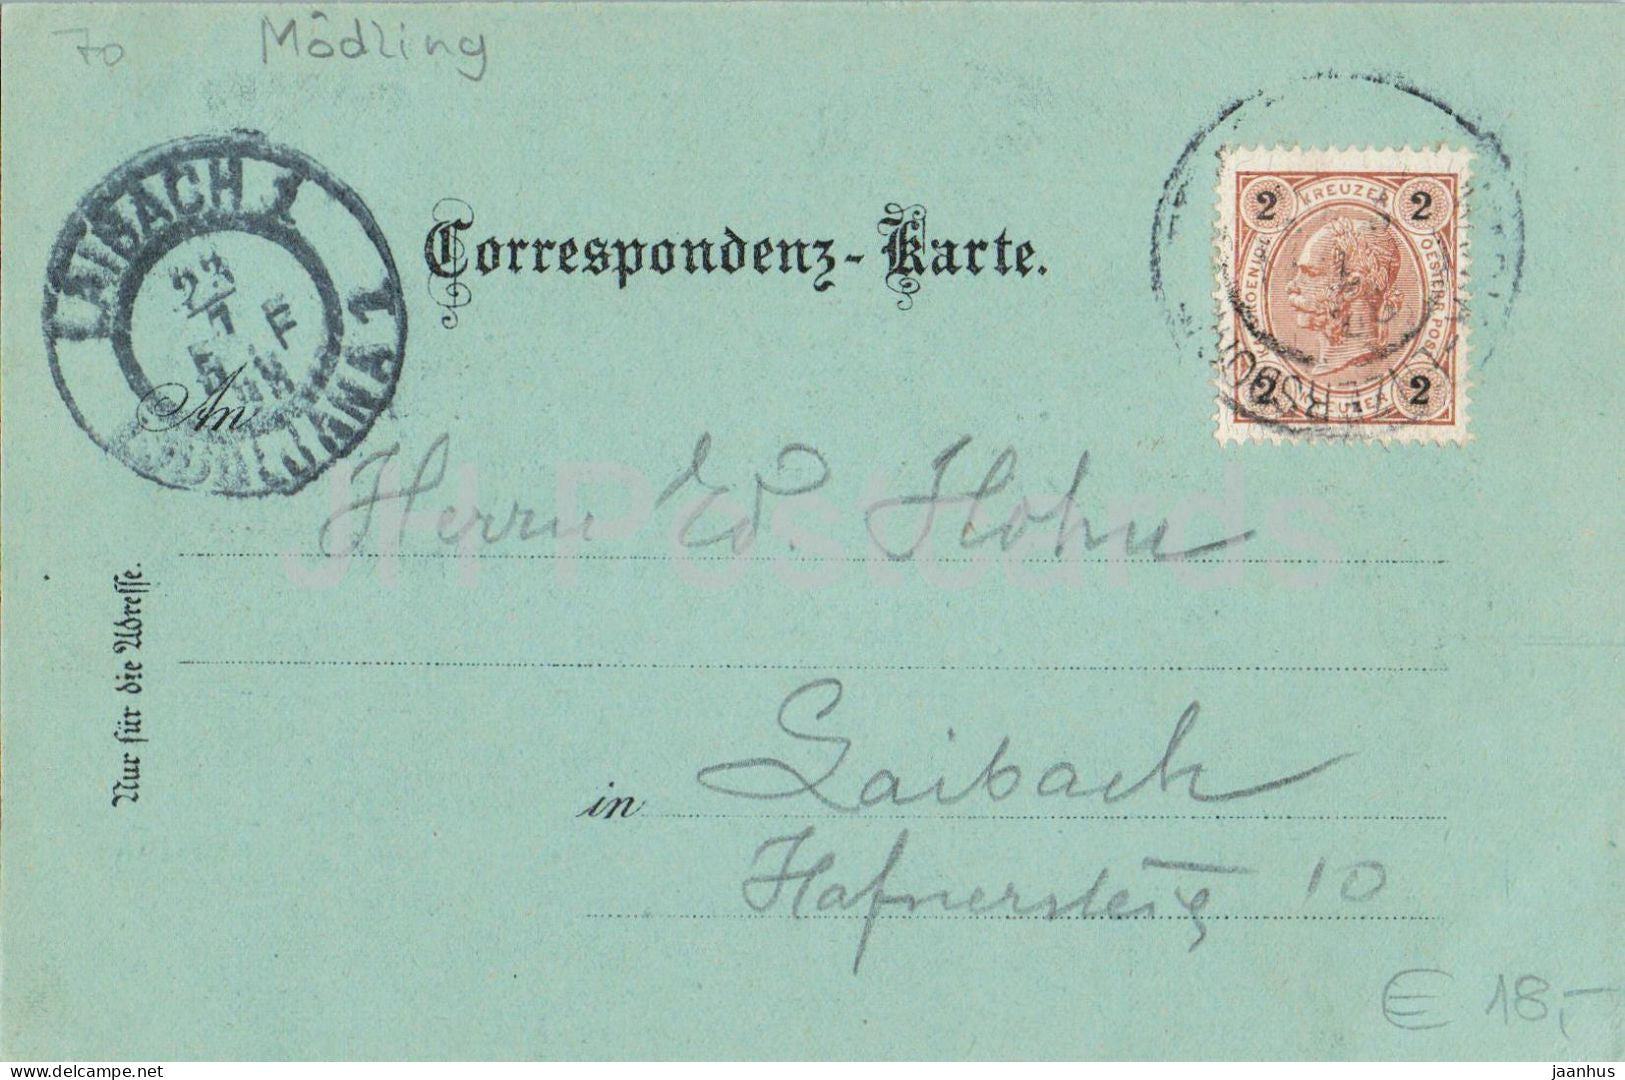 70 Mödling
LAIBACH 1
23
1
F
LJUBLJANA 1
Correspondenz-Karte.
2 KREUZER 2
OESTERR. POST
2 KREUZER 2
An
Herrn Ed. Hohn
JH Postcards
Nur für die Adresse.
in Laibach
Hafnersteig 10
€ 18,-
delcampe.net
jaanhus